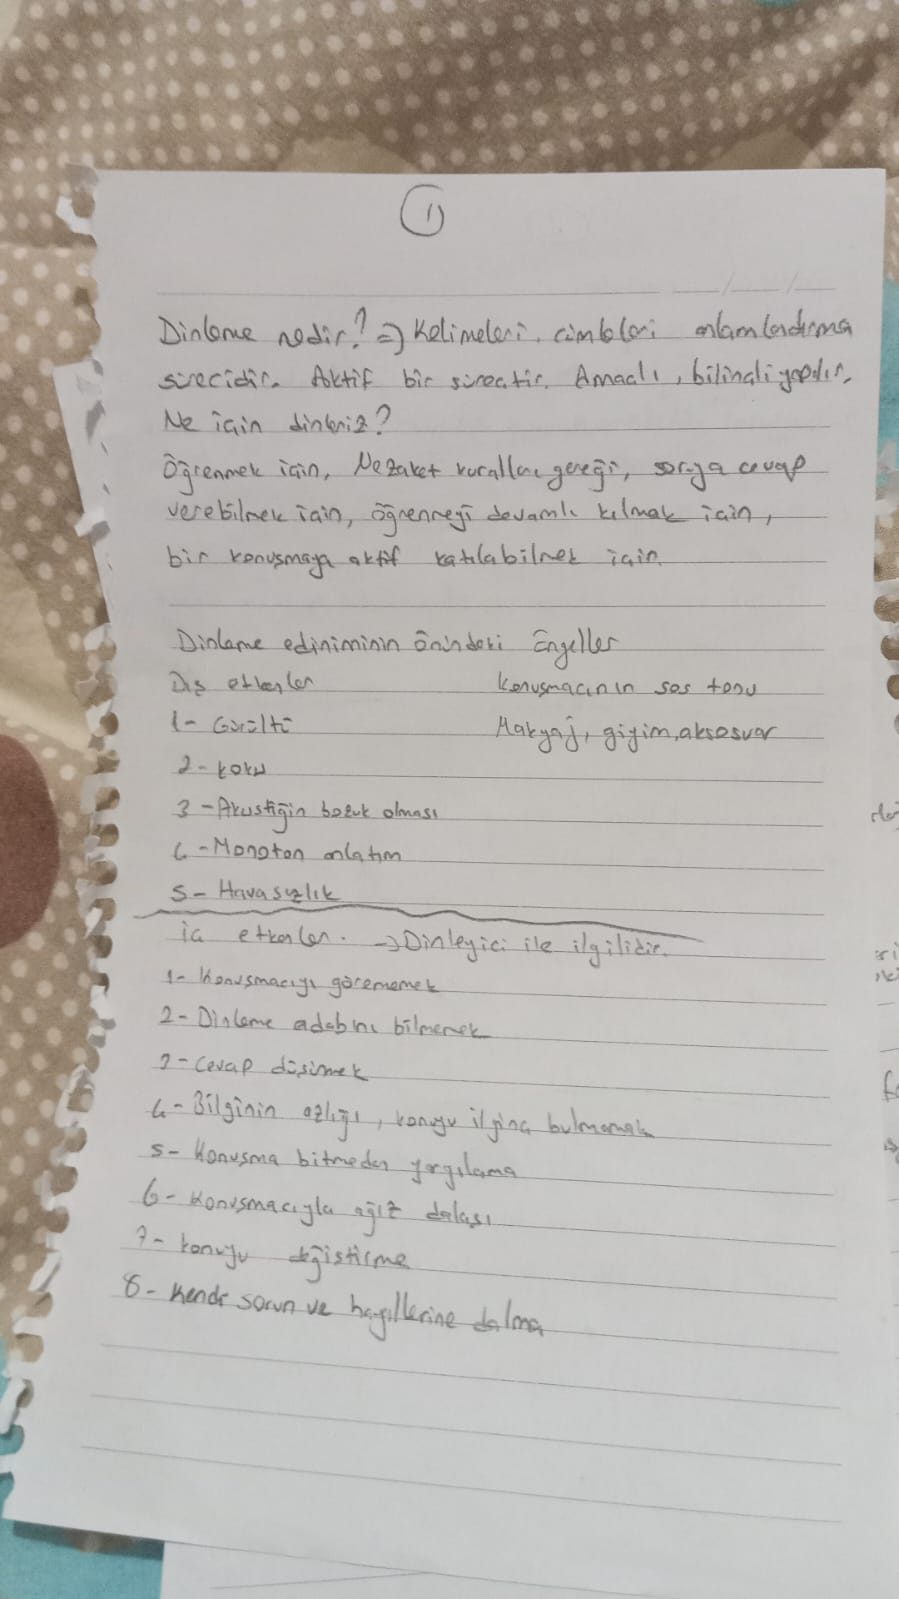 1
Dinleme nedir? => Kelimeleri, cümleleri anlamlandırma
sürecidir. Aktif bir süreçtir. Amaçlı, bilinçli yapılır.
Ne için dinleriz?
Öğrenmek için, Nezaket kuralları gereği, soruya cevap
verebilmek için, öğrenmeyi devamlı kılmak için,
bir konuşmaya aktif katılabilmek için.
Dinleme ediniminin Önündeki Engeller
Dış etkenler
Konuşmacının ses tonu
1- Gürültü
Makyaj, giyim, aksesuar
2- koku
3- Akustiğin bozuk olması
4- Monoton anlatım
5- Havasızlık
iç etkenler. -> Dinleyici ile ilgilidir.
1- Konuşmacıyı görememek
2- Dinleme adabını bilmemek
3- Cevap düşünmek
4- Bilginin azlığı, konuyu ilginç bulmamak
5- Konuşma bitmeden yargılama
6- Konuşmacıyla ağız dalaşı
7- konuyu değiştirme
8- Kendi sorun ve hayallerine dalma